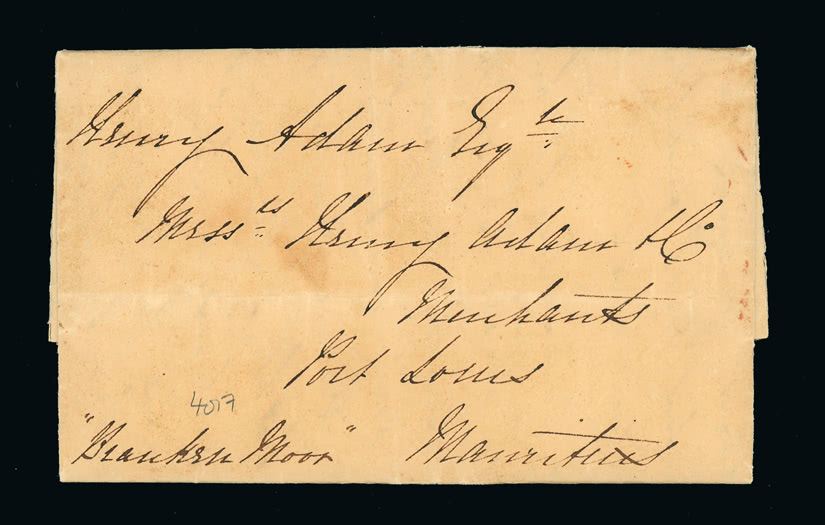 Henry Adam Esqre
Messrs Henry Adam & Co
Merchants
Port Louis
4017
"Branken Moor" Mauritius